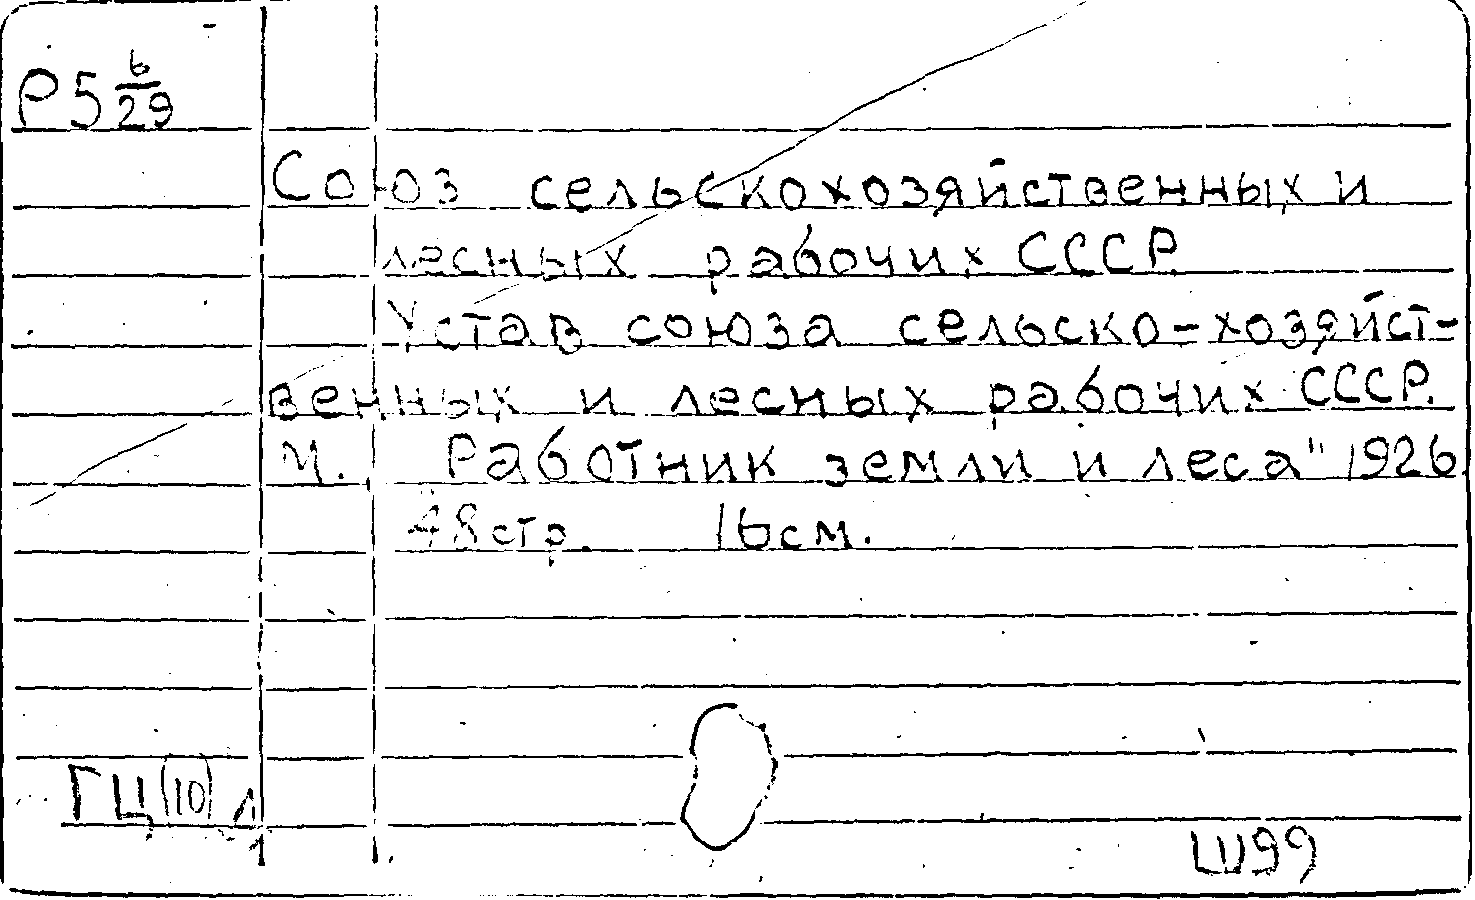 Р5 6/29
Союз сельскохозяйственных и
лесных рабочих СССР
Устав союза сельско-хозяйст-
венных и лесных рабочих СССР.
М. Работник земли и леса" 1926
48 стр. 16 см.
ГЦ(10)
Ш99